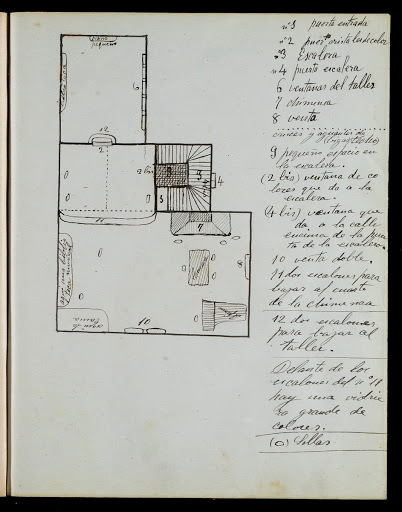 nº1 puerta entrada
nº2 puerta cristal de color
nº3 Escalera
nº4 puerta escalera
6 ventanas del taller
7 chiminia
8 venta
cruces y
9 pequeño espacio en
la escalera.
(2 bis) ventana de co
lores que da a la
escalera.
(4 bis) ventana que
da a la calle
encima de la puer
ta de la escalera.
10 venta doble.
11 dos escalones para
bajar al cuarto
de la chiminea
12 dos escalones
para bajar al
taller.
Delante de los
escalones del nº 11
hay una vidrie
ra grande de
colores.
(0) Sillas
pequeño
6
12
2
2 bis
3
4
9
5
11
7
8
aqui una
aqui la
cama
10